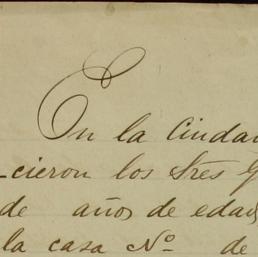 En la Ciudad
cieron los tres
de años de edad
la casa Nº de